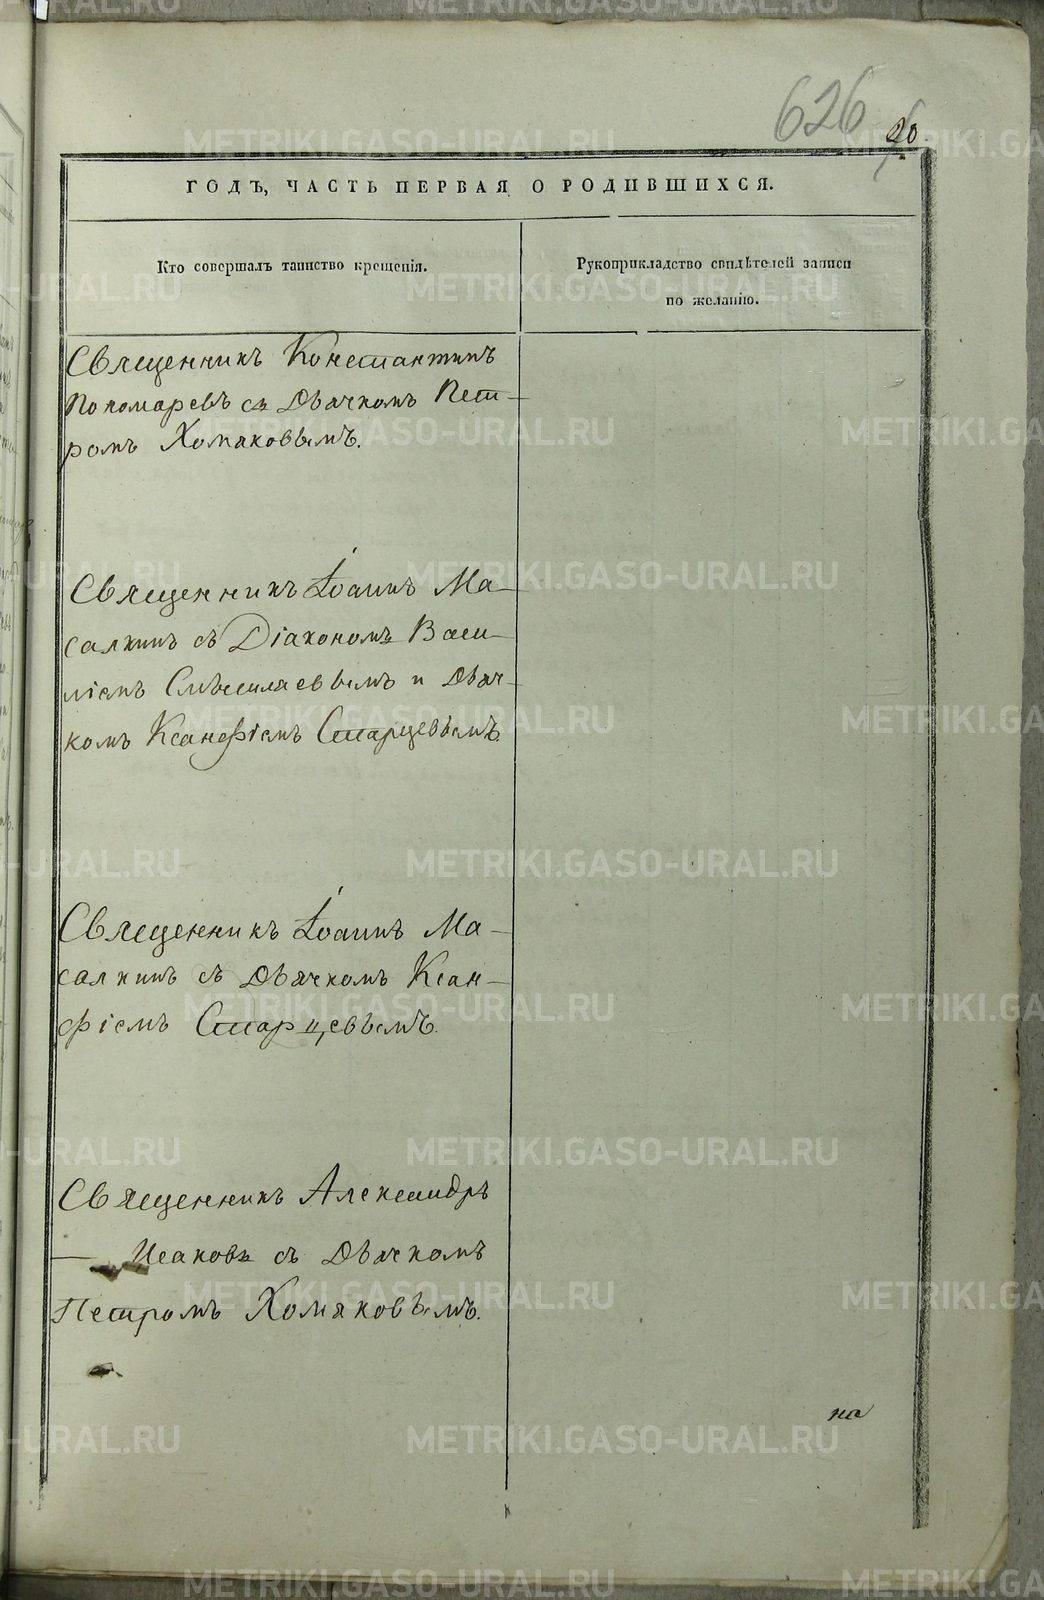 626
26.
ГОДЪ, ЧАСТЬ ПЕРВАЯ О РОДИВШИХСЯ.
Кто совершалъ таинство крещенія.
Рукоприкладство свидѣтелей записи
по желанію.
Священникъ Константинъ
Пономаревъ съ Дьячкомъ Пет-
ромъ Хомяковымъ.
Священникъ Іоаннъ Ма-
салкинъ съ Діакономъ Васи-
ліемъ и Дьяч-
комъ Ксанѳіемъ Старцевымъ.
Священникъ Іоаннъ Ма-
салкинъ съ Дьячкомъ Ксан-
фіемъ Старцевымъ.
Священникъ Александръ
Исаковъ съ Дьячкомъ
Петромъ Хомяковымъ.
на
METRIKI.GASO-URAL.RU